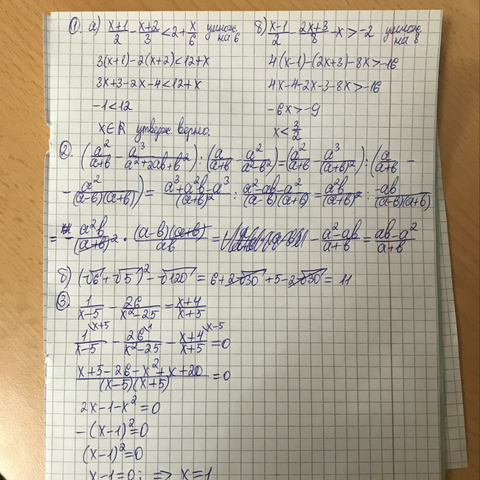 ① а) (x+1)/2 - (x+2)/3 < 2 + x/6 умнож. на 6
3(x+1)-2(x+2)<12+x
3x+3-2x-4<12+x
-1<12
x∈R утвержд верно.
б) (x-1)/2 - (2x+3)/8 - x > -2 умнож на 8
4(x-1)-(2x+3)-8x>-16
4x-4-2x-3-8x>-16
-6x>-9
x<3/2
② (a²/(a+b) - a³/(a²+2ab+b²)) : (a/(a+b) - a²/(a²-b²)) = (a²/(a+b) - a³/(a+b)²) : (a/(a+b) -
- a²/((a-b)(a+b))) = (a³+a²b-a³)/(a+b)² : (a²-ab-a²)/((a-b)(a+b)) = a²b/(a+b)² : -ab/((a-b)(a+b))
= - a²b/(a+b)² · (a-b)(a+b)/ab = - (a²-ab)/(a+b) = (ab-a²)/(a+b)
б) (√6+√5)²-√120 = 6+2√30+5-2√30 = 11
③ 1/(x-5) - 26/(x²-25) = (x+4)/(x+5)
1/(x-5) \x+5 - 26/(x²-25) \1 - (x+4)/(x+5) \x-5 = 0
(x+5-26-x²+x+20)/((x-5)(x+5)) = 0
2x-1-x²=0
-(x-1)²=0
(x-1)²=0
x-1=0; => x=1